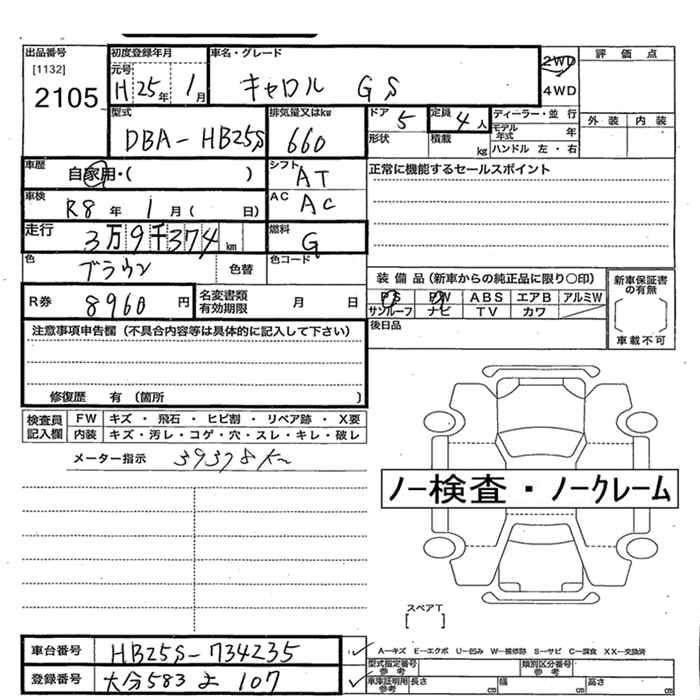 出品番号 初度登録年月 車名・グレード 2WD 評価点
[1132] 元号
2105 H 25年 1月 キャロル GS 4WD
型式 排気量又はkw ドア 5 定員 4人 ディーラー・並行 外装 内装
DBA-HB25S 660 形状 積載 kg モデル年式 年
ハンドル 左・右
車歴 自家用・( ) シフト AT 正常に機能するセールスポイント
車検 R8年 1月( 日) AC AC
走行 3万9千374km 燃料 G
色 ブラウン 色替 色コード
装備品(新車からの純正品に限り〇印) 新車保証書の有無
R券 8960円 名変書類有効期限 月 日 PS PW ABS エアB アルミW
サンルーフ ナビ TV カワ
車載不可
注意事項申告欄(不具合内容等は具体的に記入して下さい) 後日品
修復歴 有(箇所 )
検査員記入欄 FW キズ・飛石・ヒビ割・リペア跡・X要
内装 キズ・汚レ・コゲ・穴・スレ・キレ・破レ
メーター指示 39378K
ノー検査・ノークレーム
スペアT
[ ]
車台番号 HB25S-734235 A―キズ E―エクボ U―凹み W―補修跡 S―サビ C―腐食 XX―交換済
型式指定番号参考 類別区分番号参考
登録番号 大分583 よ 107 車庫証明用参考 長さ cm 幅 cm 高さ cm